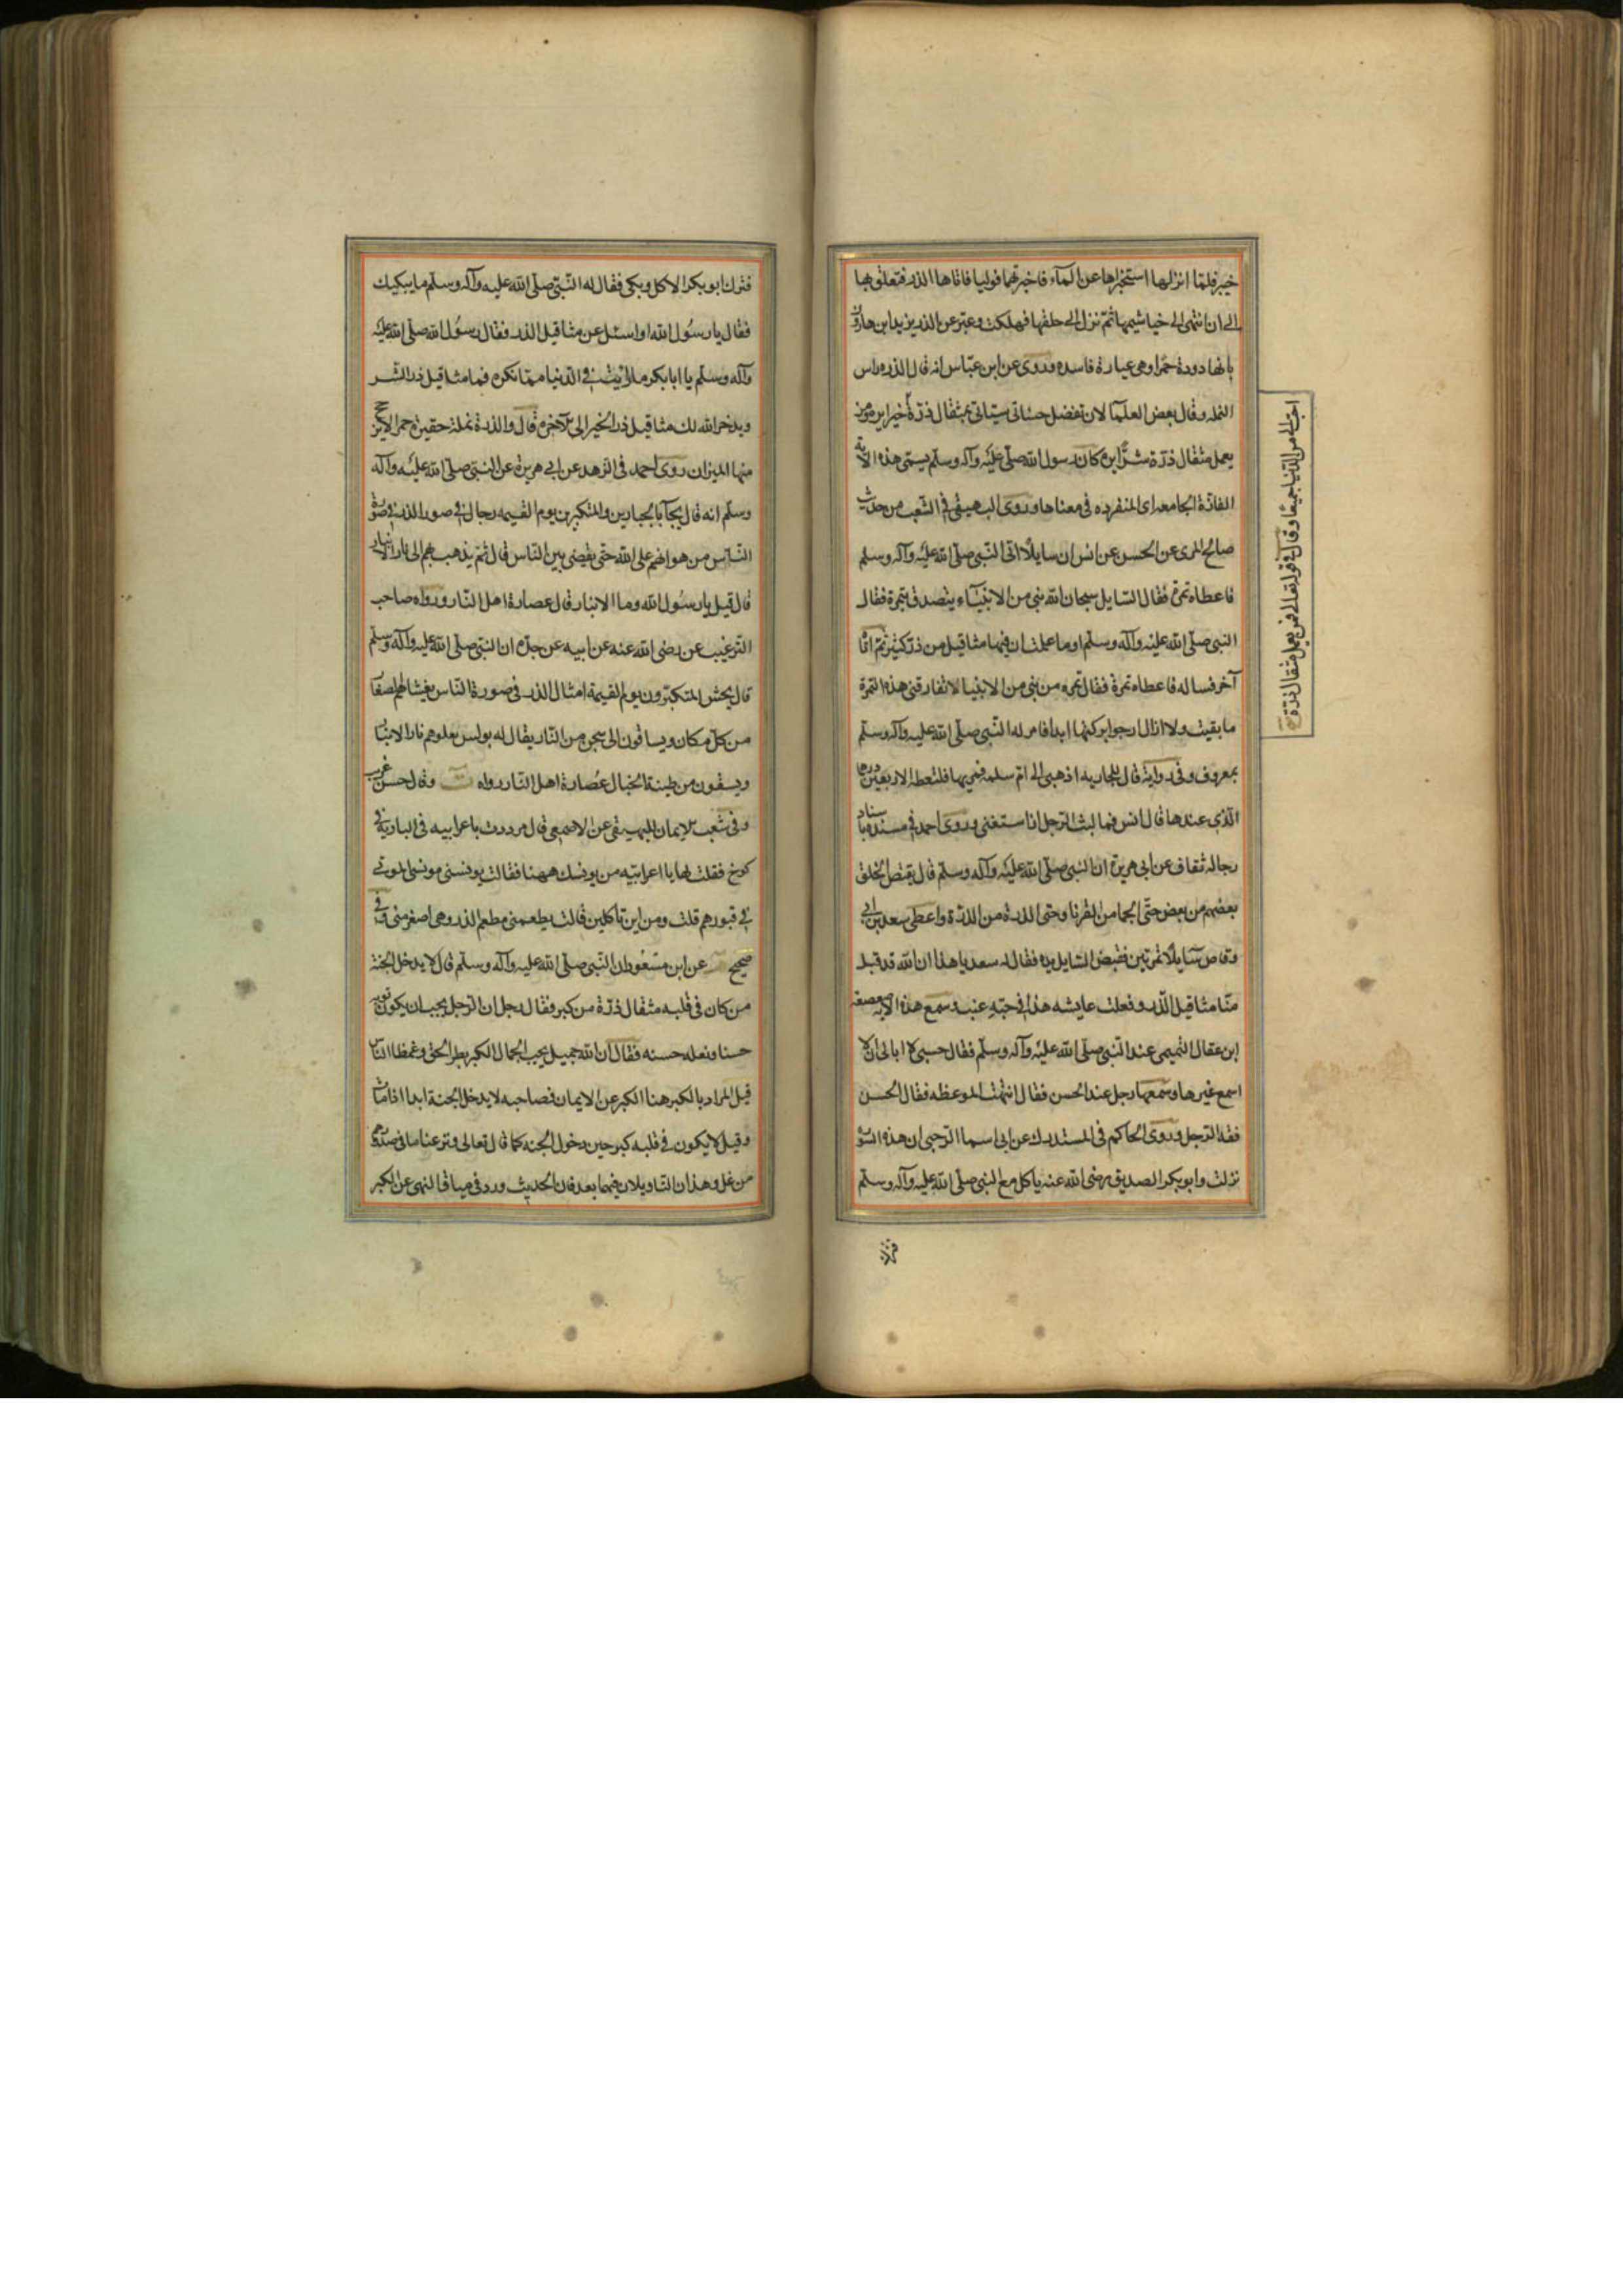 خبر فلما انزلها استخبراها عن الماء فاخبرتهما فوليا فاتاها الذر فتعلق بها
الى ان انتهى الى خياشيمها ثم نزل الى حلقها فهلكت وعبر عن الذر يزيد ابن هارون
بانها دودة حمرا وهى عبارة فاسده وروى عن ابن عباس انه قال الذر راس
النمله وقال بعض العلما لان تفضل حسناتى سيئاتى بمثقال ذرة خيرا يره ومن
يعمل مثقال ذرة شرًّا يره كان رسول الله صلى عليه وآله وسلم يسمى هذه الاية
الفاذة الجامعه اى المنفرده فى معناها وروى البيهقى فى الشعب من حديث
صالح المرى عن الحسن عن انس ان سايلًا اتى النبى صلى الله عليه وآله وسلم
فاعطاه تمرة فقال السايل سبحان الله نبى من الانبياء يتصدق بتمرة فقال
النبى صلى الله عليه وآله وسلم اوما علمت ان فيها مثاقيل من ذر كثير ثم اتا
آخر فساله فاعطاه تمرة فقال تمره من نبى من الانبيا لا تفارقنى هذه التمرة
ما بقيت ولا ازال ارجوا بركتها ابدا فامر له النبى صلى الله عليه وآله وسلم
بمعروف وفى رواية قال للجاريه اذهبى الى ام سلمه فمريها فلتعطه الاربعين درهما
الذى عندها قال انس فما لبث الرجل ان استغنى وروى احمد فى مسنده باسناد
رجاله ثقاف عن ابى هريرة ان النبى صلى الله عليه وآله وسلم قال يقتص الخلق
بعضهم من بعض حتى الجما من القرنا وحتى الذرة من الذرة واعطى سعد بن ابى
وقاص سايلًا تمرتين فقبض السايل يده فقال له سعد يا هذا ان الله قد قبل
منا مثاقيل الذر وفعلت عايشه هذا فى حبة عنب وسمع هذه الاية صعصعة
ابن عقال التميمى عند النبى صلى الله عليه وآله وسلم فقال حسبى لا ابالى ان لا
اسمع غيرها وسمعها رجل عند الحسن فقال انتهت الموعظه فقال الحسن
فقه الرجل وروى الحاكم فى المستدرك عن ابى اسما الرحبى ان هذه السورة
نزلت وابو بكر الصديق رضى الله عنه ياكل مع النبى صلى الله عليه وآله وسلم
احب الى من الدنيا جميعًا وقال فى قوله تعالى فمن يعمل مثقال ذرة
فترك ابو بكر الاكل وبكى فقال له النبى صلى الله عليه وآله وسلم ما يبكيك
فقال يا رسول الله اواسئل عن مثاقيل الذر فقال رسول الله صلى الله عليه
وآله وسلم يا ابا بكر ما رايت فى الدنيا مما تكره فمما مثاقيل ذر الشر
ويدخر الله لك مثاقيل ذر الخير الى الآخره قال والذرة نملة حقيرة حمرا لا يرجح
منها الميزان روى احمد فى الزهد عن ابى هريرة عن النبى صلى الله عليه وآله
وسلم انه قال يجآ بالجبارين والمتكبرين يوم القيمه رجال فى صور الذر فى صورة
الناس من هوانهم على الله حتى يقضى بين الناس قال ثم يذهب بهم الى نار الانيار
قال قيل يا رسول الله وما الانيار قال عصارة اهل النار ورواه صاحب
الترغيب عن رضى الله عنه عن ابيه عن جده ان النبى صلى الله عليه وآله وسلم
قال يحشر المتكبرون يوم القيمة امثال الذر فى صورة الناس يغشاهم الصغار
من كل مكان ويساقون الى سجن من النار يقال له بولس تعلوهم نار الانيار
ويسقون من طينة الخبال عصارة اهل النار رواه ت وقال حسن غريب
وفى شعب الايمان للبيهقى عن الاصمعى قال مررت باعرابيه فى البادية فى
كوخ فقلت لها يا اعرابيه من يونسك ههنا فقالت يونسنى مونس الموتى
فى قبورهم قلت ومن اين تاكلين قالت يطعمنى مطعم الذر وهى اصغر منى وفى
صحيح عن ابن مسعود ان النبى صلى الله عليه وآله وسلم قال لا يدخل الجنة
من كان فى قلبه مثقال ذرة من كبر فقال رجل ان الرجل يحب ان يكون ثوبه
حسنا ونعله حسنه فقال ان الله جميل يحب الجمال الكبر بطر الحق وغمط الناس
قيل المراد بالكبر هنا الكبر عن الايمان فصاحبه لا يدخل الجنة ابدا اذا مات
وقيل لا يكون فى قلبه كبر حين دخول الجنه كما قال تعالى ونزعنا ما فى صدورهم
من غل وهذان التاويلان فيهما بعد فان الحديث ورد فى سياق النهى عن الكبر